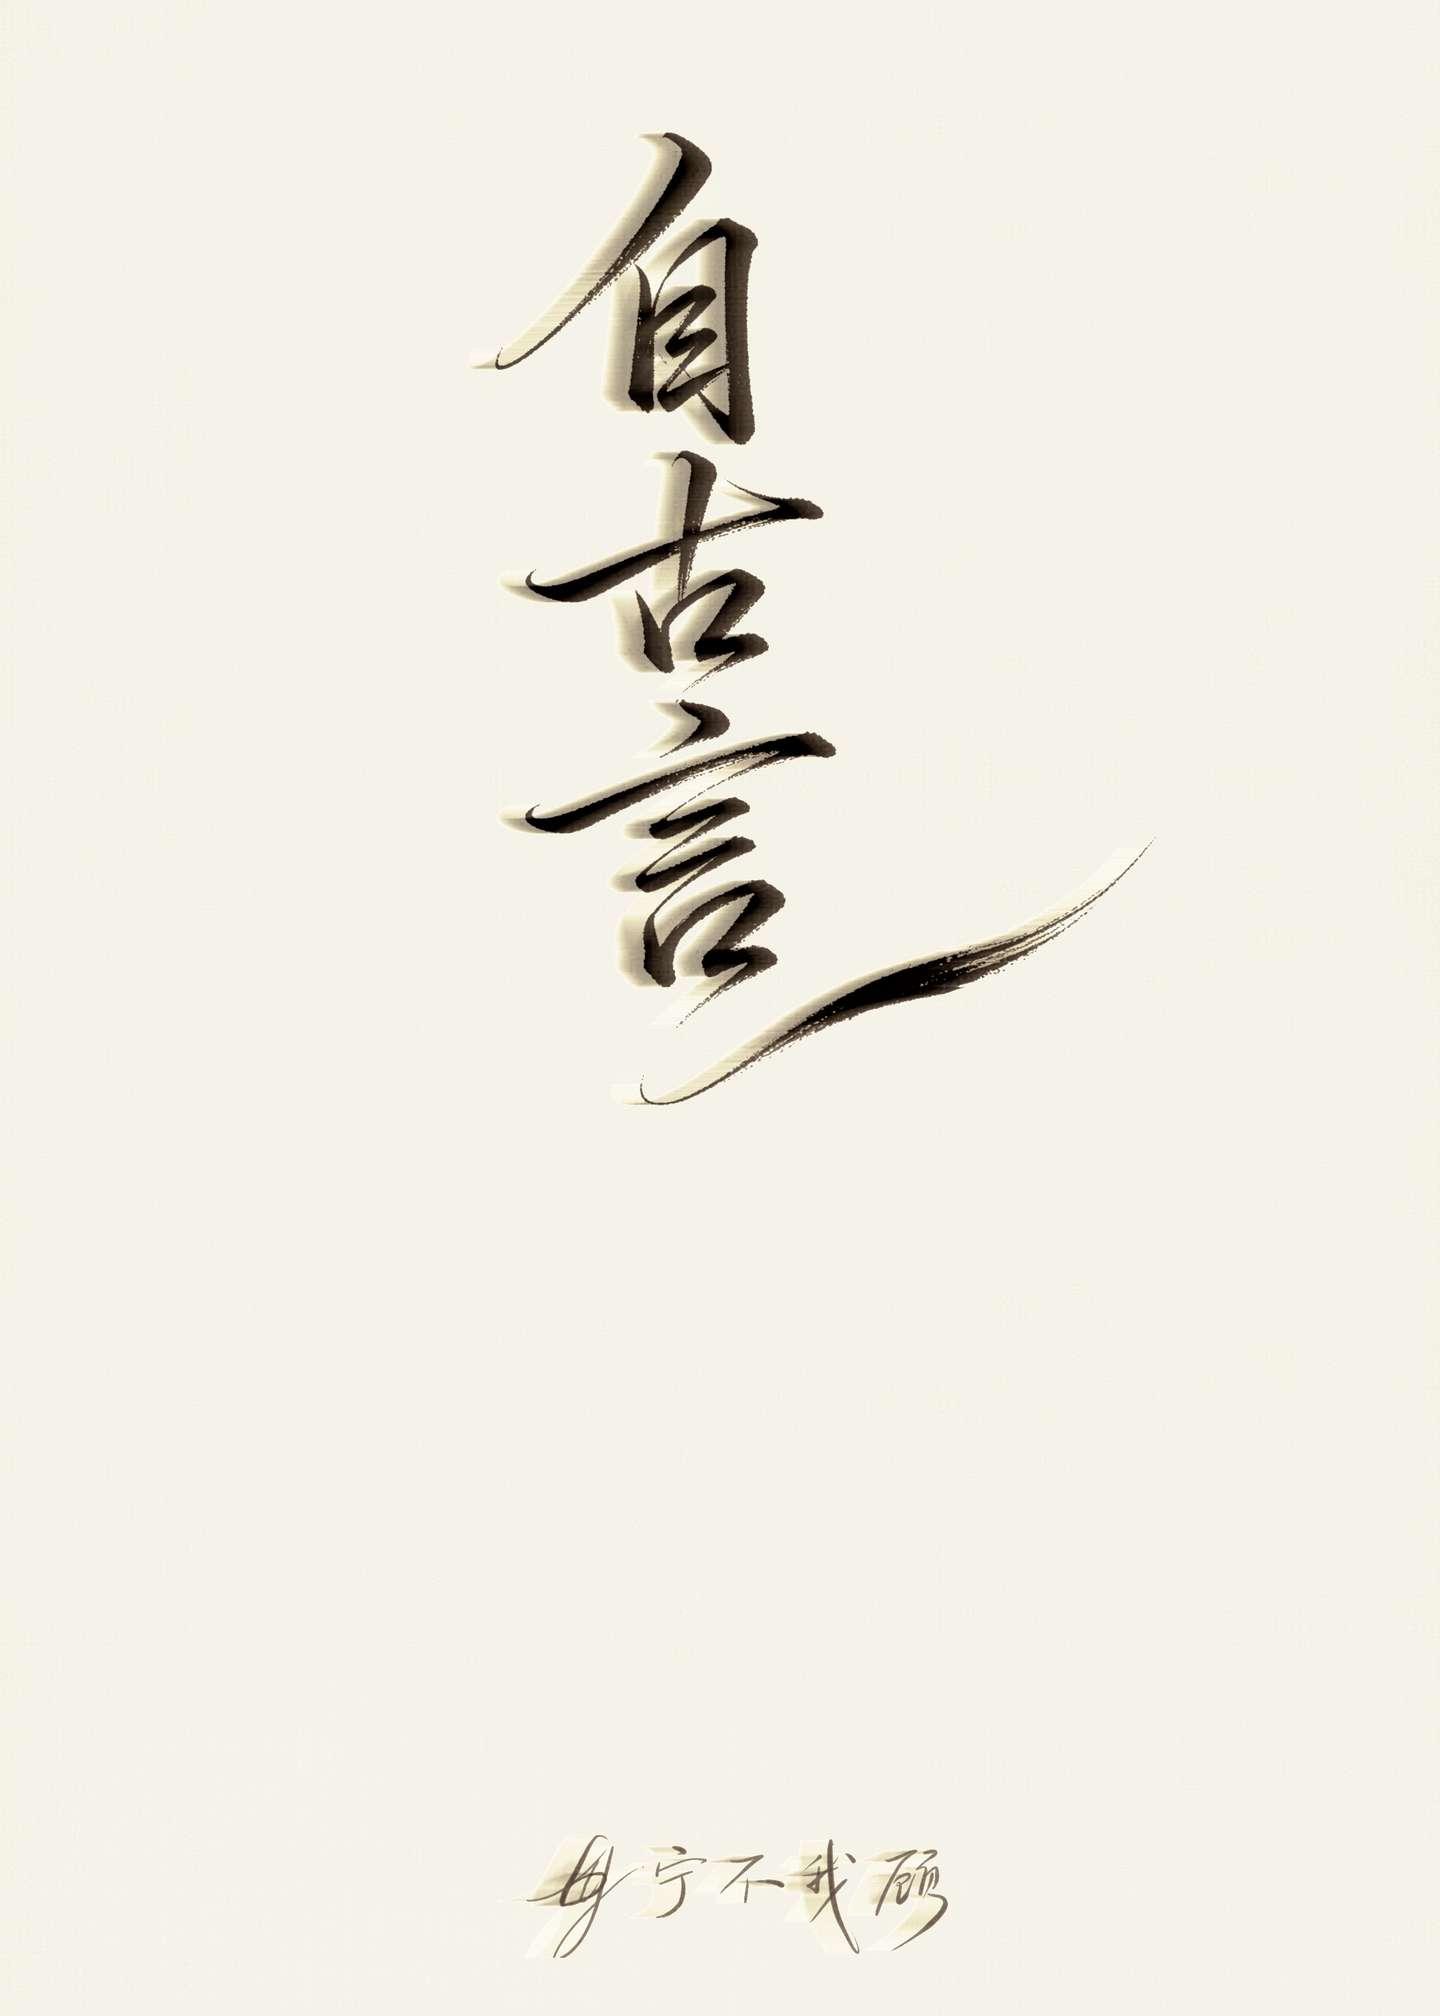 自古言
毋宁不我顾